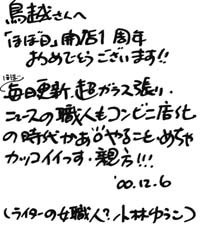 鳥越さんへ
「ほぼ日」開店1周年
おめでとうございます!!
ほぼ
毎日更新、超ガラス張り、
ニュースの職人もコンビニ店化
の時代かぁ やることめちゃ
カッコイイっす・親方!!!
'00.12.6
(ライターの女職人?小林ゆうこ)